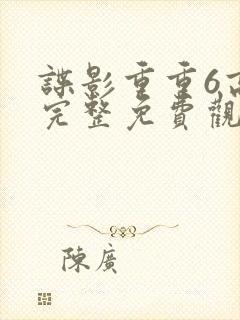 諜影重重6高
完整免費觀
陳廣